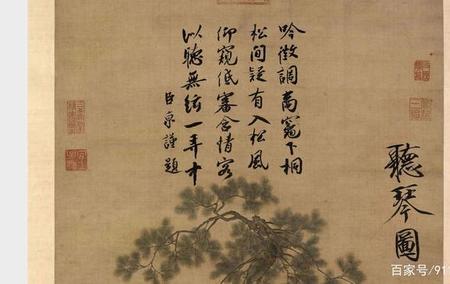 聽琴圖
吟徵調商竈下桐
松間疑有入松風
仰窺低審含情客
似聽無絃一弄中
臣京謹題
百家号/91